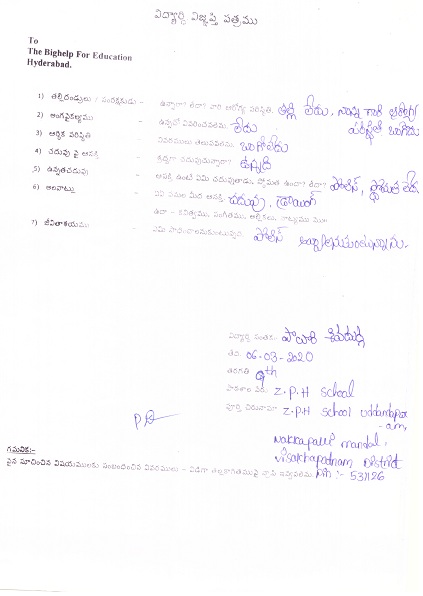 విద్యార్థి విజ్ఞప్తి పత్రము
To
The Bighelp For Education
Hyderabad.
1) తల్లిదండ్రులు / సంరక్షకుడు - ఉన్నారా? లేదా? వారి ఆరోగ్య పరిస్థితి. తల్లి లేదు, నాన్న గారి ఆరోగ్య
పరిస్థితి బాగోదు
2) అంగవైకల్యము - ఉన్నచో వివరించవలెను. లేదు
3) ఆర్థిక పరిస్థితి - వివరములు తెలుపవలెను. బాగోలేదు
4) చదువు పై ఆసక్తి - శ్రద్ధగా చదువుచున్నాడా? ఉన్నది
5) ఉన్నతచదువు - ఆసక్తి ఉంటే ఏమి చదువుతాడు, స్తోమత ఉందా? లేదా? పోలీస్, స్తోమత లేదు
6) అలవాట్లు - ఏఏ పనుల మీద ఆసక్తి చదువు, డ్రాయింగ్
ఉదా - కవిత్వము, సంగీతము, ఆటలు, నాట్యము మొ॥
7) జీవితాశయము - ఏమి సాధించాలనుకుంటున్నావు. పోలీస్ అవ్వాలనుకుంటున్నాను.
విద్యార్థి సంతకం
తేది. 06-03-2020
తరగతి 9th
పాఠశాల పేరు Z.P.H School
పూర్తి చిరునామా Z.P.H School Uddandapur
-am,
Nakkapalli mandal,
Visakhapatnam District
గమనిక:-
పైన సూచించిన విషయములకు సంబంధించిన వివరములు - విడిగా తెల్లకాగితముపై వ్రాసి ఇవ్వవలెను. Pin :- 531126